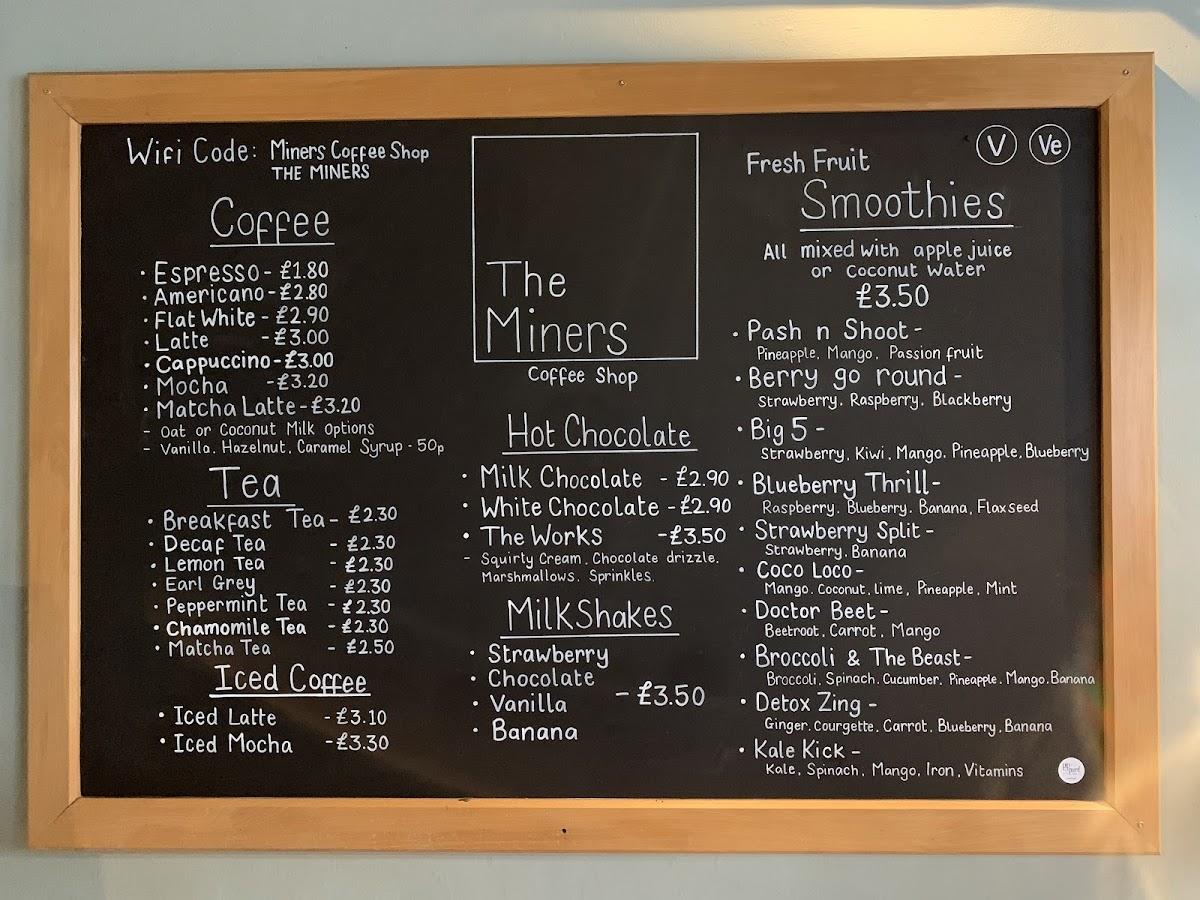 Wifi Code: Miners Coffee Shop
THE MINERS
Coffee
· Espresso - £1.80
· Americano - £2.80
· Flat White - £2.90
· Latte - £3.00
· Cappuccino - £3.00
· Mocha - £3.20
· Matcha Latte - £3.20
- Oat or Coconut Milk options
- Vanilla, Hazelnut, Caramel Syrup - 50p
Tea
· Breakfast Tea - £2.30
· Decaf Tea - £2.30
· Lemon Tea - £2.30
· Earl Grey - £2.30
· Peppermint Tea - £2.30
· Chamomile Tea - £2.30
· Matcha Tea - £2.50
Iced Coffee
· Iced Latte - £3.10
· Iced Mocha - £3.30
The
Miners
Coffee Shop
Hot Chocolate
· Milk Chocolate - £2.90
· White Chocolate - £2.90
· The Works - £3.50
- Squirty Cream, Chocolate drizzle,
Marshmallows, Sprinkles.
MilkShakes
· Strawberry
· Chocolate
· Vanilla - £3.50
· Banana
V Ve
Fresh Fruit
Smoothies
All mixed with apple juice
or Coconut Water
£3.50
· Pash n Shoot -
Pineapple, Mango, Passion fruit
· Berry go round -
Strawberry, Raspberry, Blackberry
· Big 5 -
Strawberry, Kiwi, Mango, Pineapple, Blueberry
· Blueberry Thrill -
Raspberry, Blueberry, Banana, Flaxseed
· Strawberry Split -
Strawberry, Banana
· Coco Loco -
Mango, Coconut, lime, Pineapple, Mint
· Doctor Beet -
Beetroot, Carrot, Mango
· Broccoli & The Beast -
Broccoli, Spinach, Cucumber, Pineapple, Mango, Banana
· Detox Zing -
Ginger, Courgette, Carrot, Blueberry, Banana
· Kale Kick -
Kale, Spinach, Mango, Iron, Vitamins